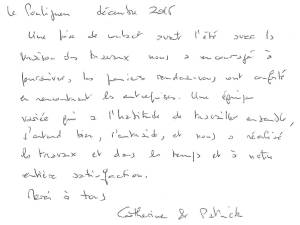 Le Pouliguen décembre 2016
Une prise de contact avant l'été avec la
maison des travaux nous a encouragé à
poursuivre, les premiers rendez-vous ont conforté
en rencontrant les entreprises. Une équipe
variée qui a l'habitude de travailler ensemble,
s'entend bien, s'entraide, et nous a réalisé
les travaux et dans les temps et à notre
entière satisfaction.
Merci à tous
Catherine & Patrick